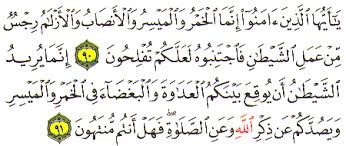 يَـٰٓأَيُّهَا ٱلَّذِينَ ءَامَنُوٓا۟ إِنَّمَا ٱلْخَمْرُ وَٱلْمَيْسِرُ وَٱلْأَنصَابُ وَٱلْأَزْلَـٰمُ رِجْسٌ
مِّنْ عَمَلِ ٱلشَّيْطَـٰنِ فَٱجْتَنِبُوهُ لَعَلَّكُمْ تُفْلِحُونَ ٩٠ إِنَّمَا يُرِيدُ
ٱلشَّيْطَـٰنُ أَن يُوقِعَ بَيْنَكُمُ ٱلْعَدَٰوَةَ وَٱلْبَغْضَآءَ فِى ٱلْخَمْرِ وَٱلْمَيْسِرِ
وَيَصُدَّكُمْ عَن ذِكْرِ ٱللَّهِ وَعَنِ ٱلصَّلَوٰةِ ۖ فَهَلْ أَنتُم مُّنتَهُونَ ٩١